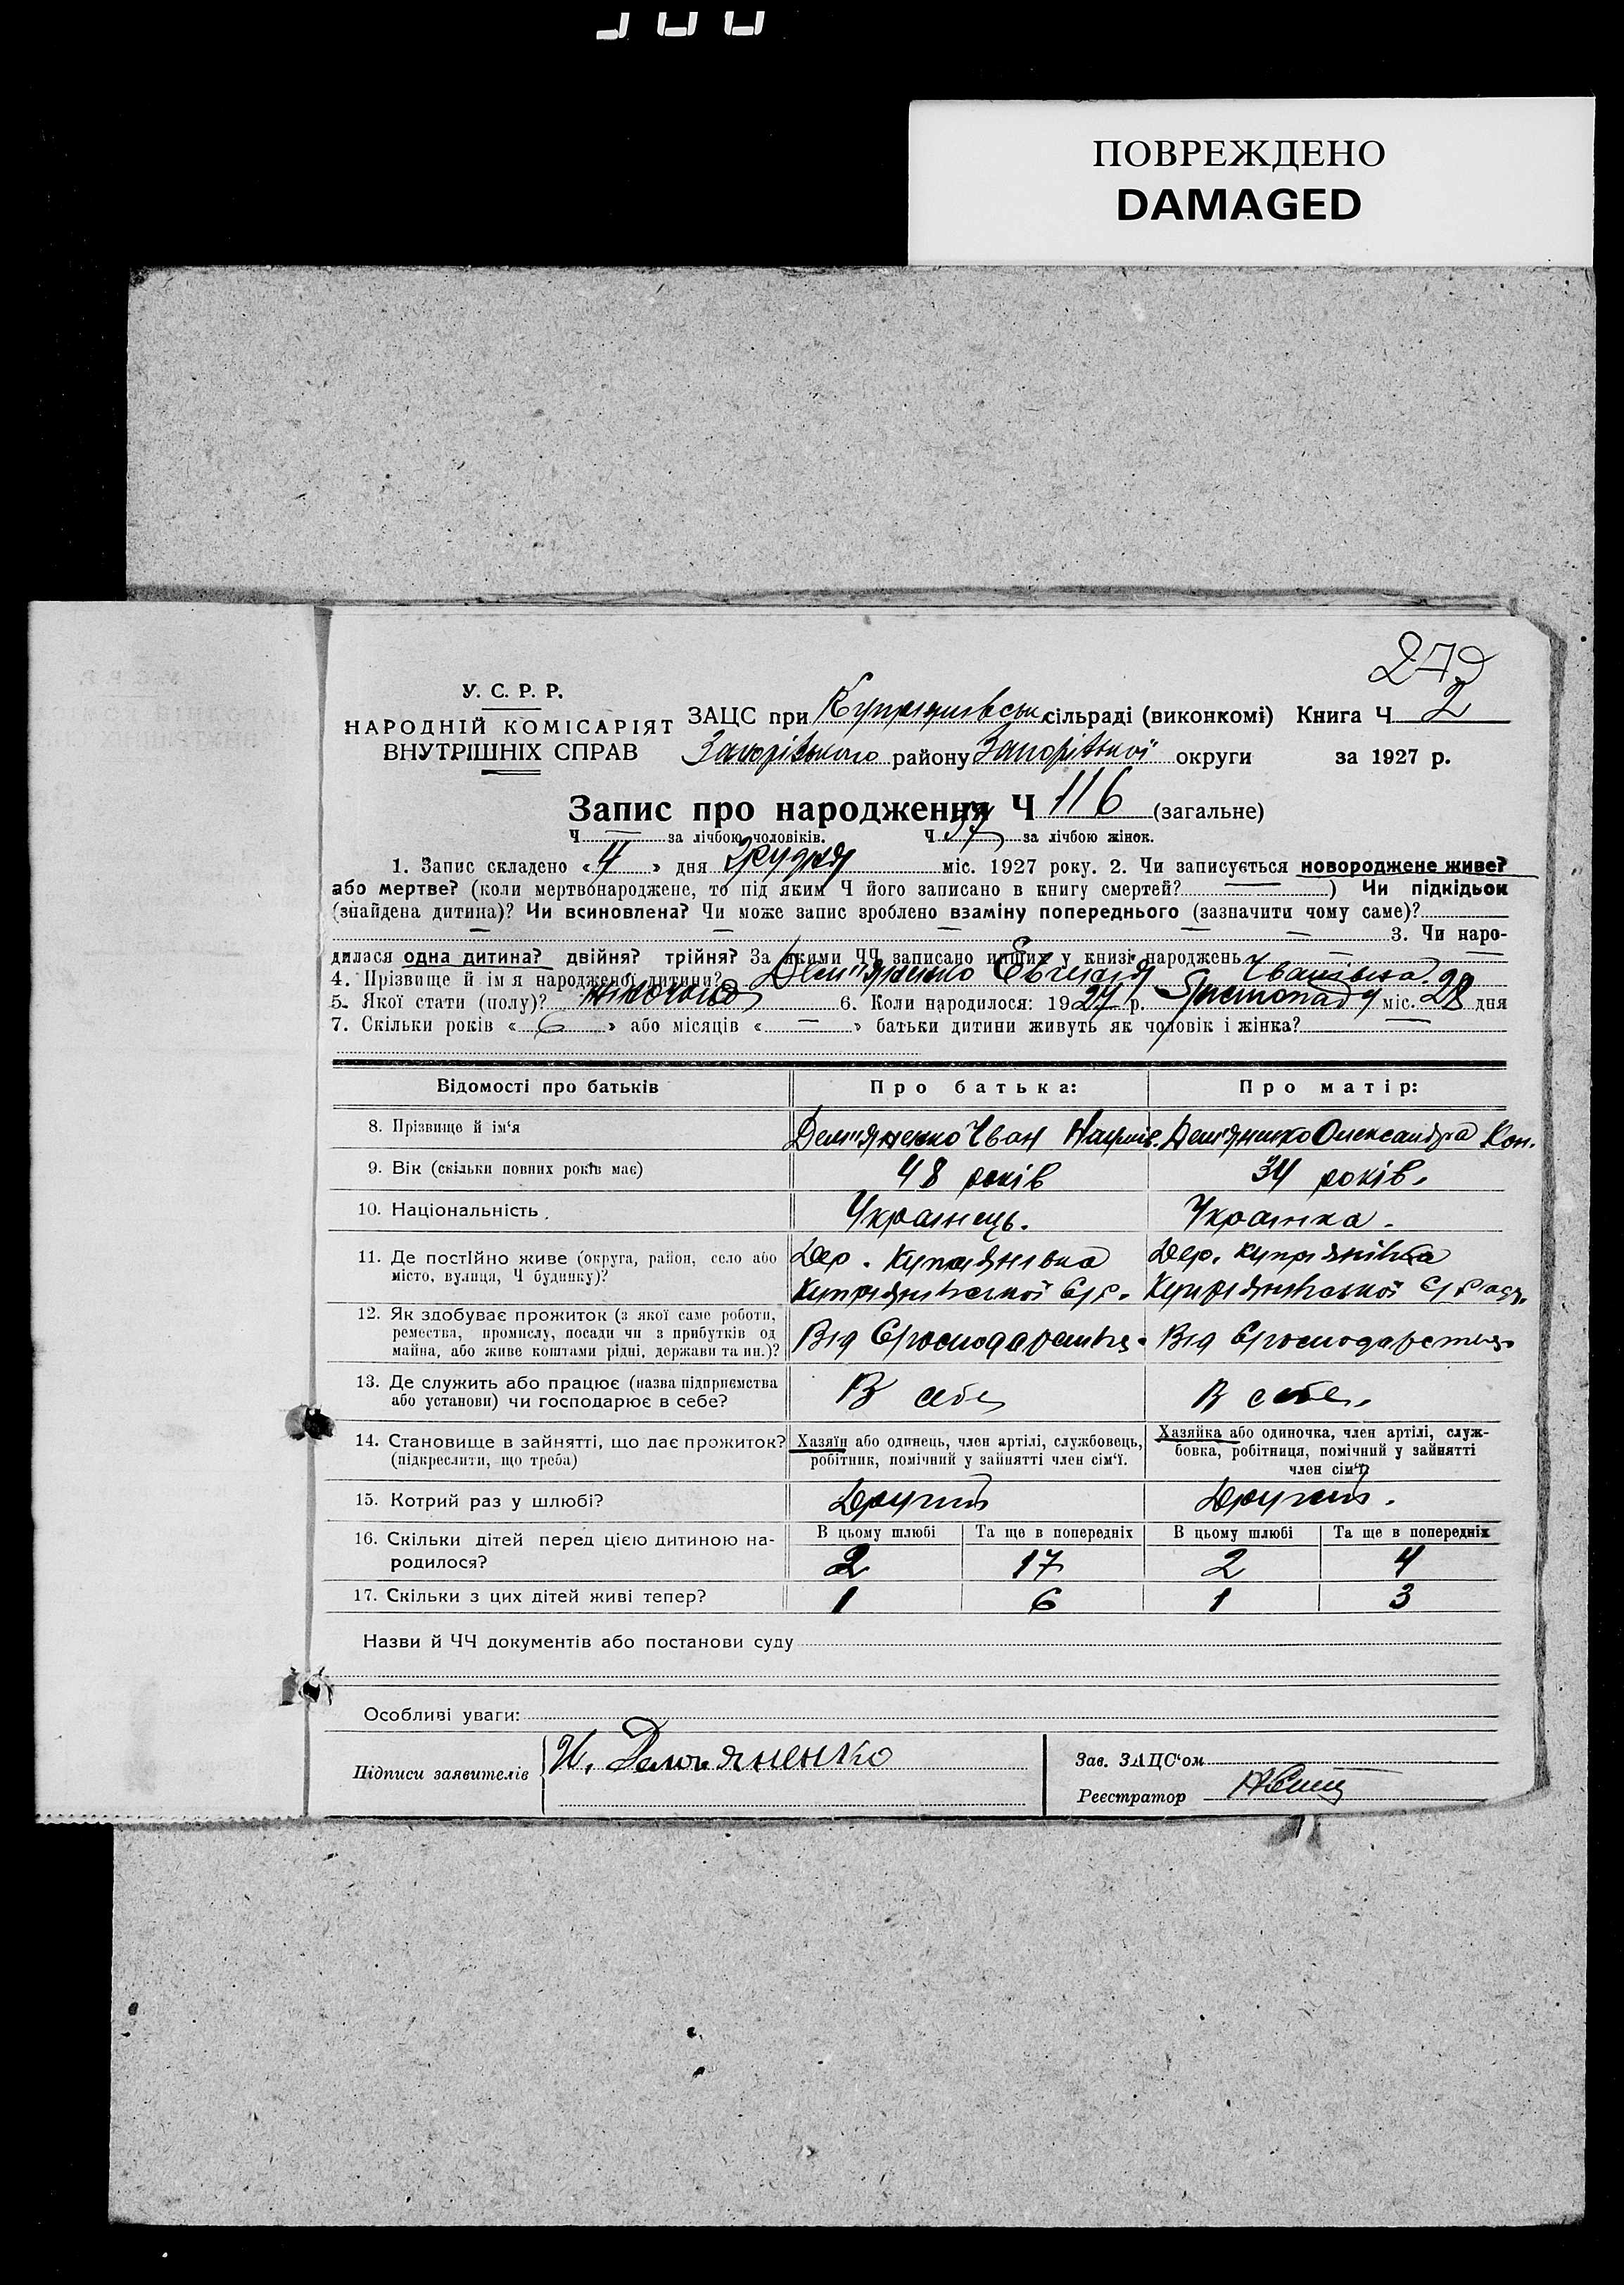 ПОВРЕЖДЕНО
DAMAGED
272
У. С. Р. Р.
НАРОДНІЙ КОМІСАРІЯТ
ВНУТРІШНІХ СПРАВ
ЗАЦС при Купріянівськ. сільраді (виконкомі) Книга Ч 2
Запорізького району Запорізької округи за 1927 р.
Запис про народження Ч 116 (загальне)
Ч — за лічбою чоловіків. Ч 57 за лічбою жінок.
1. Запис складено « 4 » дня Грудня міс. 1927 року. 2. Чи записується новороджене живе?
або мертве? (коли мертвонароджене, то під яким Ч його записано в книгу смертей? — ) Чи підкідьок
(знайдена дитина)? Чи всиновлена? Чи може запис зроблено взаміну попереднього (зазначити чому саме)?
— — — — — 3. Чи наро-
дилася одна дитина? двійня? трійня? За якими ЧЧ записано инших у книзі народжень — —
4. Прізвище й ім'я народженої дитини? Дем"яненко Евгенія Іванівна.
5. Якої стати (полу)? жіночої 6. Коли народилося: 1927 р. Листопаду міс. 28 дня
7. Скільки років « 6 » або місяців « — » батьки дитини живуть як чоловік і жінка? —
Відомості про батьків Про батька: Про матір:
8. Прізвище й ім'я Дем"яненко Іван Наумів. Дем'яненко Олександра Кон.
9. Вік (скільки повних років має) 48 років 34 років.
10. Національність Українець. Українка.
11. Де постійно живе (округа, район, село або Дер. Купріянівка Дер. Купріянівка
місто, вулиця, Ч будинку)? Купріянівської С/р. Купріянівської С/ради.
12. Як здобуває прожиток (з якої саме роботи,
ремества, промислу, посади чи з прибутків од Від С/господарства. Від С/господарства.
майна, або живе коштами рідні, держави та ин.)?
13. Де служить або працює (назва підприємства В себе В себе.
або установи) чи господарює в себе?
14. Становище в зайнятті, що дає прожиток? Хазяїн або одинець, член артілі, службовець, Хазяйка або одиночка, член артілі, служ-
(підкреслити, що треба) робітник, помічний у зайнятті член сім'ї. бовка, робітниця, помічний у зайнятті
член сім'ї?
15. Котрий раз у шлюбі? Другий Другий.
16. Скільки дітей перед цією дитиною на- В цьому шлюбі Та ще в попередніх В цьому шлюбі Та ще в попередніх
родилося? 2 17 2 4
17. Скільки з цих дітей живі тепер? 1 6 1 3
Назви й ЧЧ документів або постанови суду
Особливі уваги:
Підписи заявителів И. Демъяненко
Зав. ЗАЦС'ом —
Реєстратор